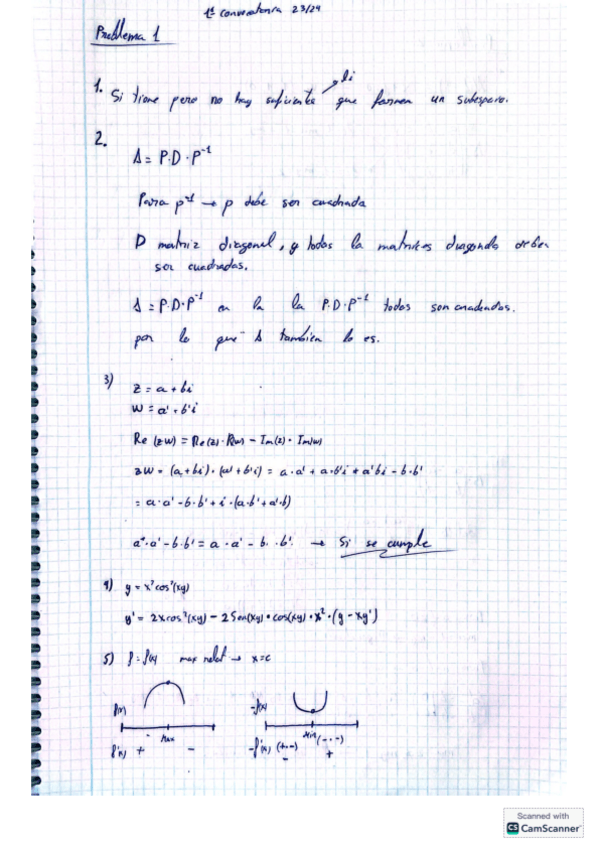 1ª convocatoria 23/24
Problema 1
li
1. Si tiene pero no hay suficientes que formen un subespacio.
2.
A = P·D·P⁻¹
Para P⁻¹ → P debe ser cuadrada
D matriz diagonal, y todas la matrices diagonals deben
ser cuadradas.
A = P·D·P⁻¹ en la la P·D·P⁻¹ todos son cuadrados.
por lo que A tambien lo es.
3) z = a + bi
w = a' + b'i
Re (zw) = Re(z) · R(w) - Im(z) · Im(w)
zw = (a + bi) · (a' + b'i) = a·a' + a·b'i + a'bi - b·b'
= a·a' - b·b' + i·(a·b' + a'·b)
a·a' - b·b' = a·a' - b·b' → Si se cumple
4) y = x²cos²(xy)
y' = 2xcos²(xy) - 2Sen(xy)·cos(xy)·x²·(y - xy')
5) f = f(x) max relat → x=c
f(x) -f(x)
Max Min (-·-)
f'(x) + - -f'(x) (+·-) - +
Scanned with
CS CamScanner